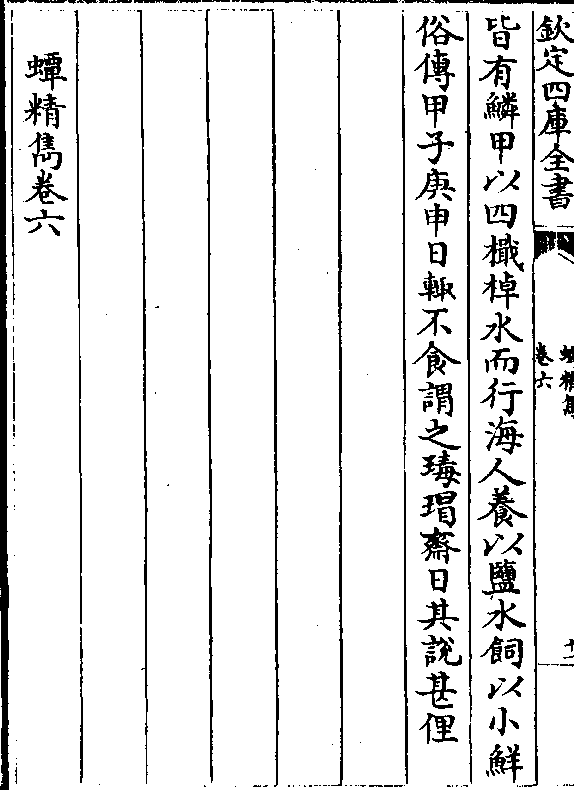 欽定四庫全書
蟫精雋
卷六
十二
皆有鱗甲以四檝棹水而行海人養以鹽水飼以小鮮
俗傳甲子庚申日輙不食謂之瑇瑁齋日其說甚俚
蟫精雋卷六